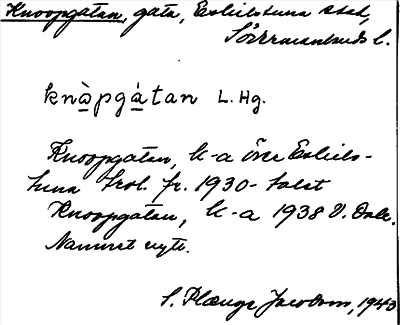 Knoopgatan, gata, Eskilstuna stad,
Södermanlands l.
knàpgátan L. Hg.
Knoopgatan, k-a över Eskils-
tuna fr. 1930-talet
Knoopgatan, k-a 1938 V. Dale.
Namnet nytt.
S. Plænge Jacobson, 1943